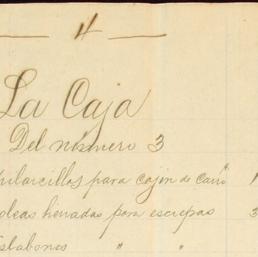 4
La Caja
Del número 3
pilarcillos para cajon de carro 1
oleas herradas para escrepas 3
eslabones " "